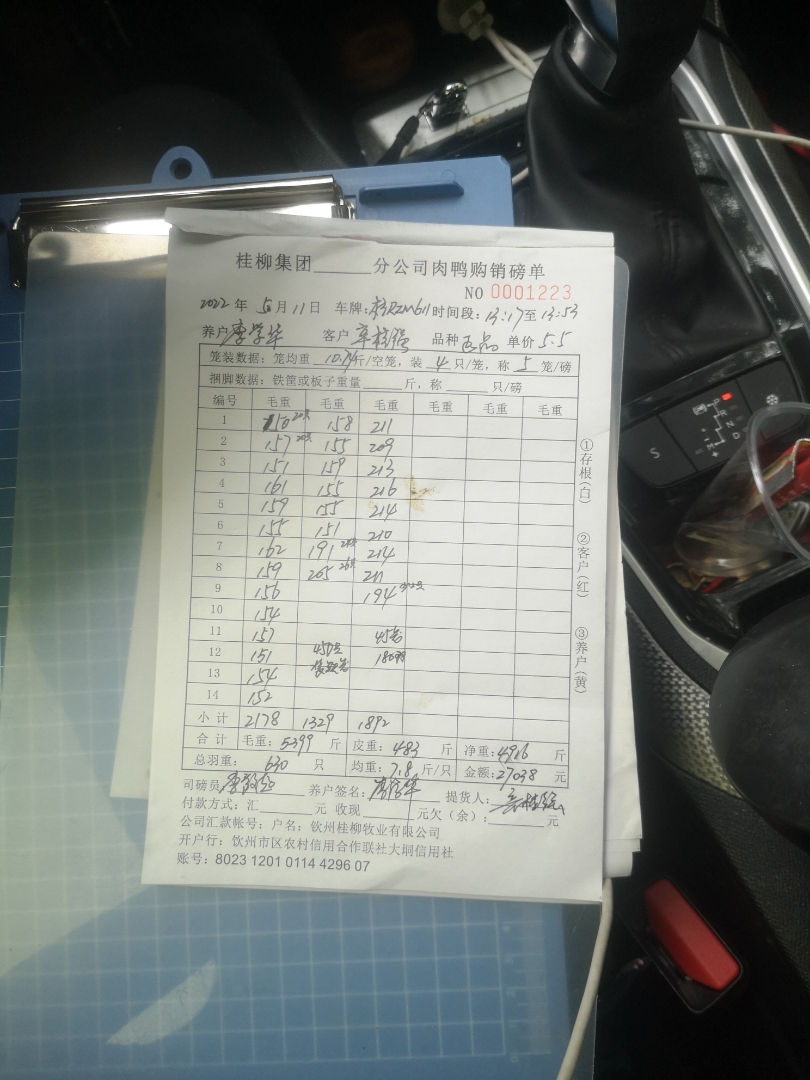 桂柳集团______分公司肉鸭购销磅单
NO 0001223
2022年5月11日 车牌: 时间段:13:17至13:53
养户 客户 品种正品 单价5.5
笼装数据:笼均重 斤/空笼,装4只/笼,称5笼/磅
捆脚数据:铁筐或板子重量______斤,称______只/磅
编号 毛重 毛重 毛重 毛重 毛重 毛重
1 150 158 211
2 157 155 209
3 151 159 213
4 161 155 216
5 159 155 214
6 155 151 210
7 162 191 214
8 159 265 211
9 156 194
10 154
11 157 45笼
12 151
13 154
14 152
小计 2178 1329 1892
合计 毛重:5399斤 皮重:483斤 净重:4916斤
总羽重: 630 只 均重:7.8斤/只 金额:27038元
司磅员 养户签名: 提货人:
付款方式:汇______元 收现______元欠(余):______元
公司汇款帐号:户名:钦州桂柳牧业有限公司
开户行:钦州市区农村信用合作联社大垌信用社
账号:8023 1201 0114 4296 07
①存根(白)
②客户(红)
③养户(黄)
S
R
N
D
M